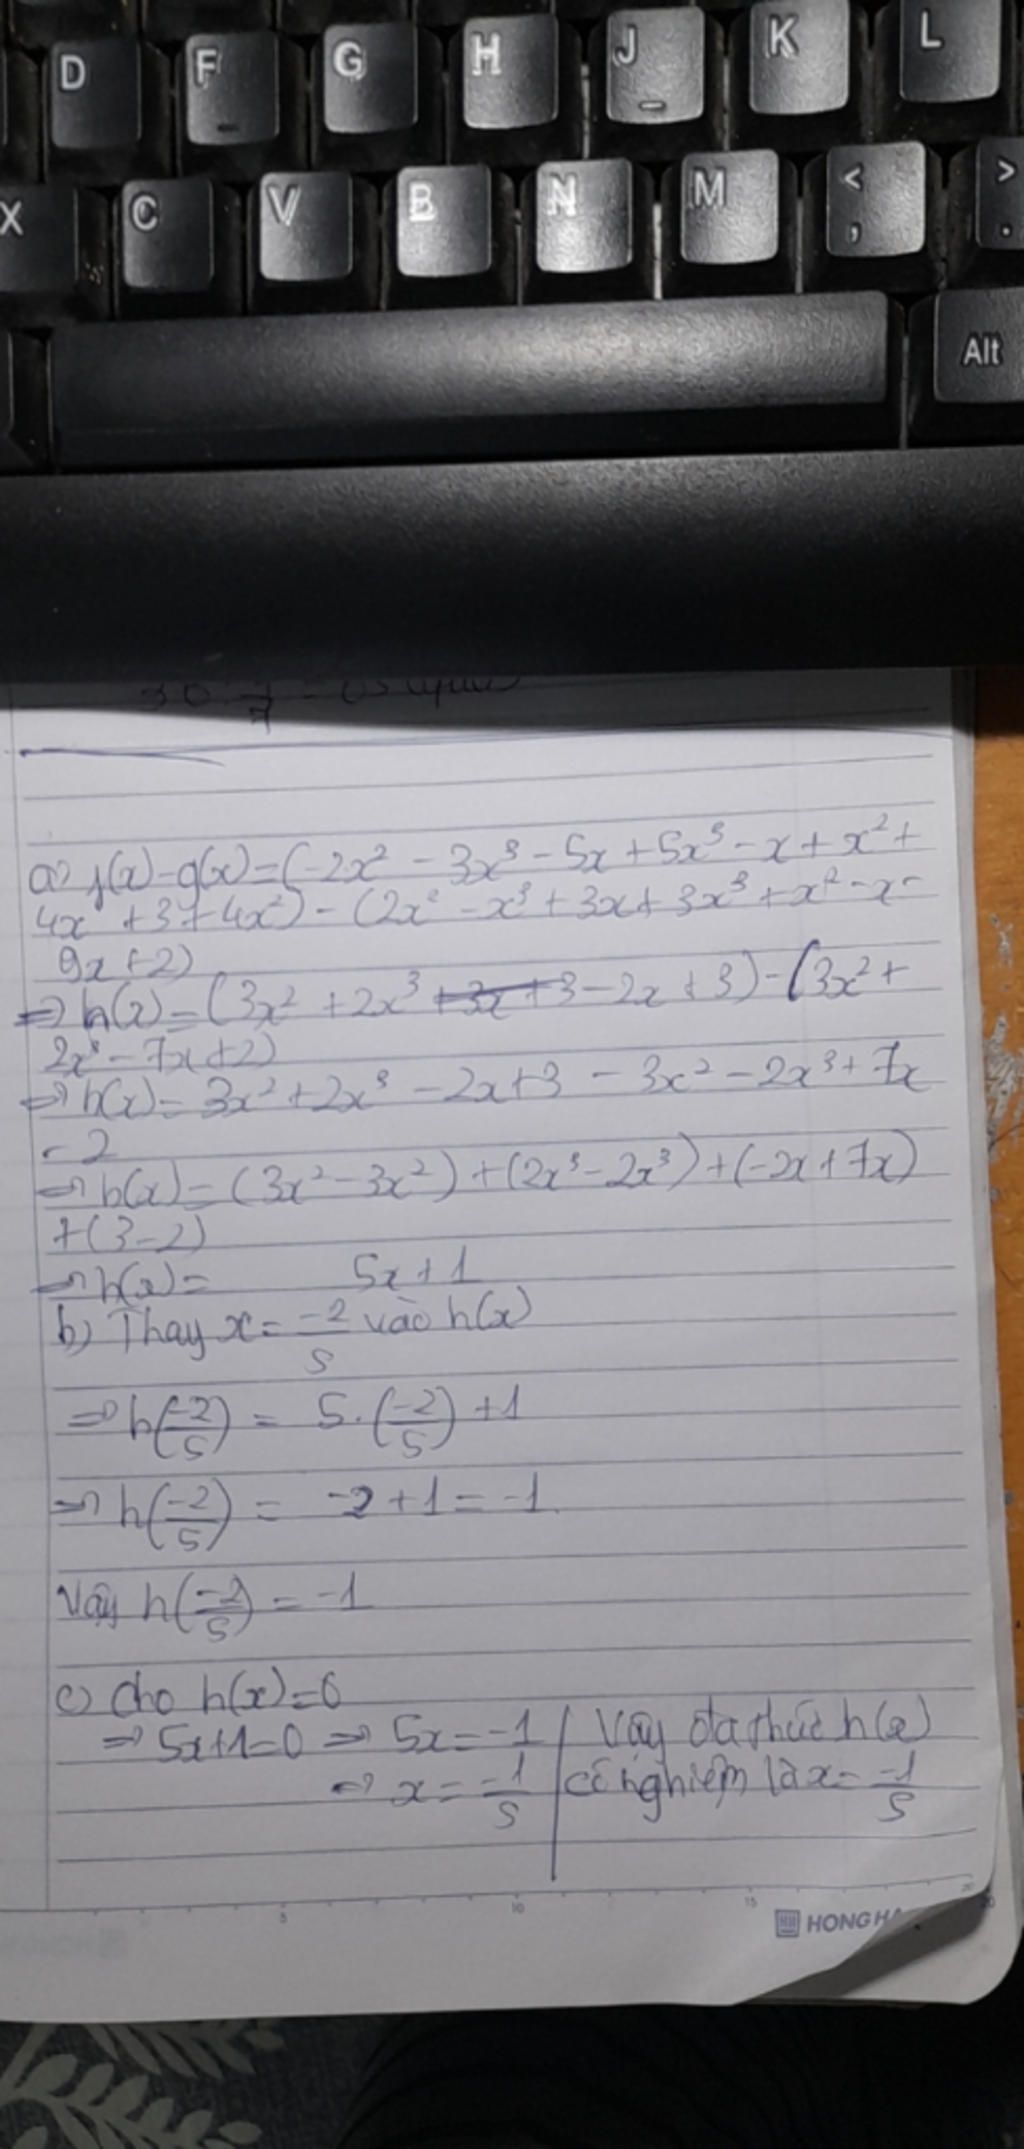 D F G H J K L
X C V B N M < , > .
Alt
a) f(x)-g(x)=(-2x² - 3x³ - 5x + 5x³ - x + x² +
4x + 3 + 4x²) - (2x² - x³ + 3x + 3x³ + x² - x -
9x + 2)
=> h(x) = (3x² + 2x³ - 2x + 3) - (3x² +
2x³ - 7x + 2)
=> h(x) = 3x² + 2x³ - 2x + 3 - 3x² - 2x³ + 7x
- 2
=> h(x) = (3x² - 3x²) + (2x³ - 2x³) + (-2x + 7x)
+ (3 - 2)
=> h(x) = 5x + 1
b) Thay x = -2/5 vào h(x)
=> h(-2/5) = 5.(-2/5) + 1
=> h(-2/5) = -2 + 1 = -1.
Vậy h(-2/5) = -1
c) Cho h(x) = 0
=> 5x + 1 = 0 => 5x = -1
=> x = -1/5
Vậy đa thức h(x)
có nghiệm là x = -1/5
5 10 15 20
HONG HA